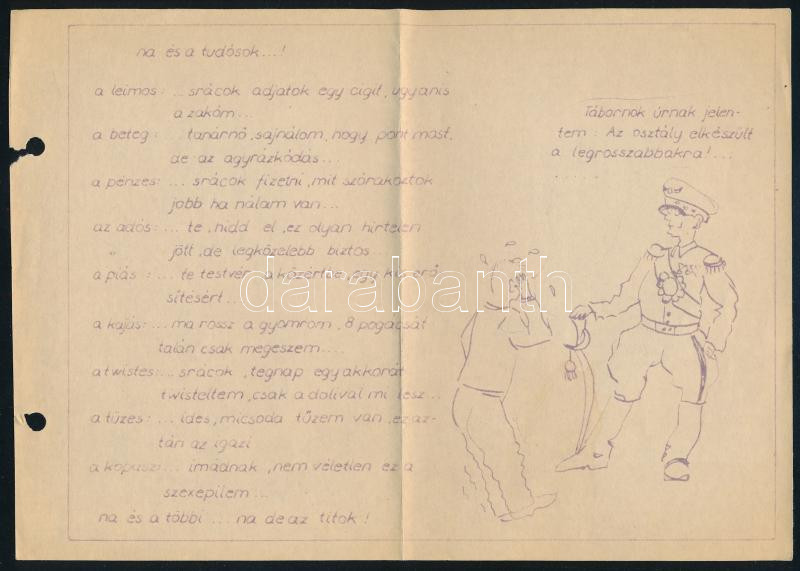 na és a tudósok...!
a leimos: ... srácok adjatok egy cigit, ugyanis
a zakóm...
a beteg: ... tanárnő, sajnálom, hogy pont most,
de az agyrázkódás...
a pénzes: ... srácok fizetni, mit szórakoztok
jobb ha nálam van...
az adós: ... te, hidd el, ez olyan hirtelen
jött, de legközelebb biztos...
a piás: ... te testvér, a közértbe, egy kis erő
sítésért...
a kajás: ... ma rossz a gyomrom, 8 pogácsát
talán csak megeszem....
a twistes: ... srácok, tegnap egy akkorát
twisteltem, csak a dolival mi lesz...
a tüzes: ... ides, micsoda tűzem van, ez az-
tán az igazi
a kopasz: ... imádnak, nem véletlen ez a
szexepilem...
na és a többi ... na de az titok!
Tábornok úrnak jelen-
tem: Az osztály elkészült
a legrosszabbakra!...
darabanth